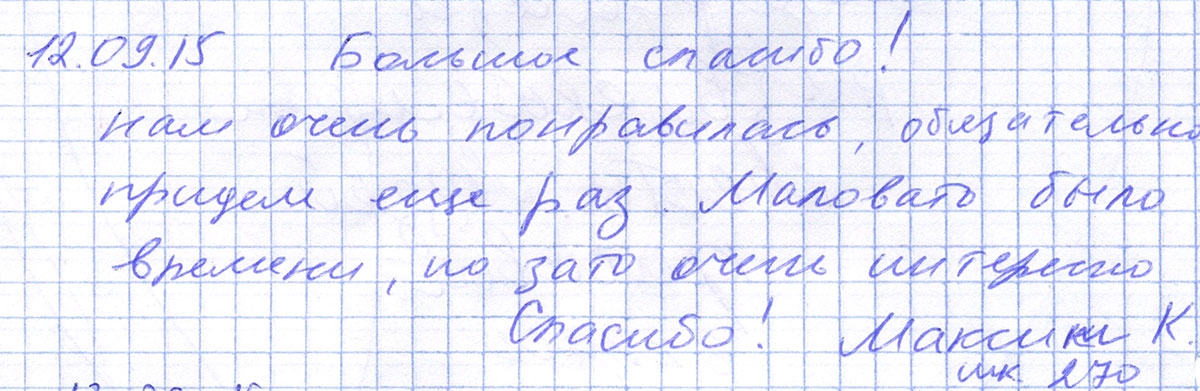 12.09.15 Большое спасибо!
нам очень понравилась, обязательно
придем еще раз. Маловато было
времени, но зато очень интересно
Спасибо! Максим К.
шк 270